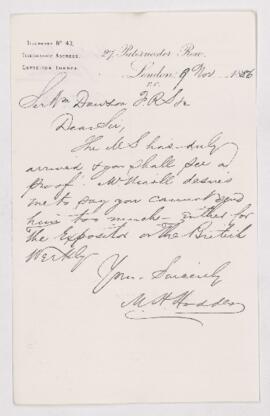 TELEPHONE No 43.
TELEGRAPHIC ADDRESS,
EXPOSITOR LONDON.
27, Paternoster Row,
London, 9 Nov 1886
E.C.
Sir Wm Dawson F.R.S &c
Dear Sir,
The MS has duly
arrived & you shall see a
Proof. Mr Nicoll desires
me to say you cannot send
him too much - either for
The Expositor or The British
Weekly
Yours Sincerely
M H Hodder